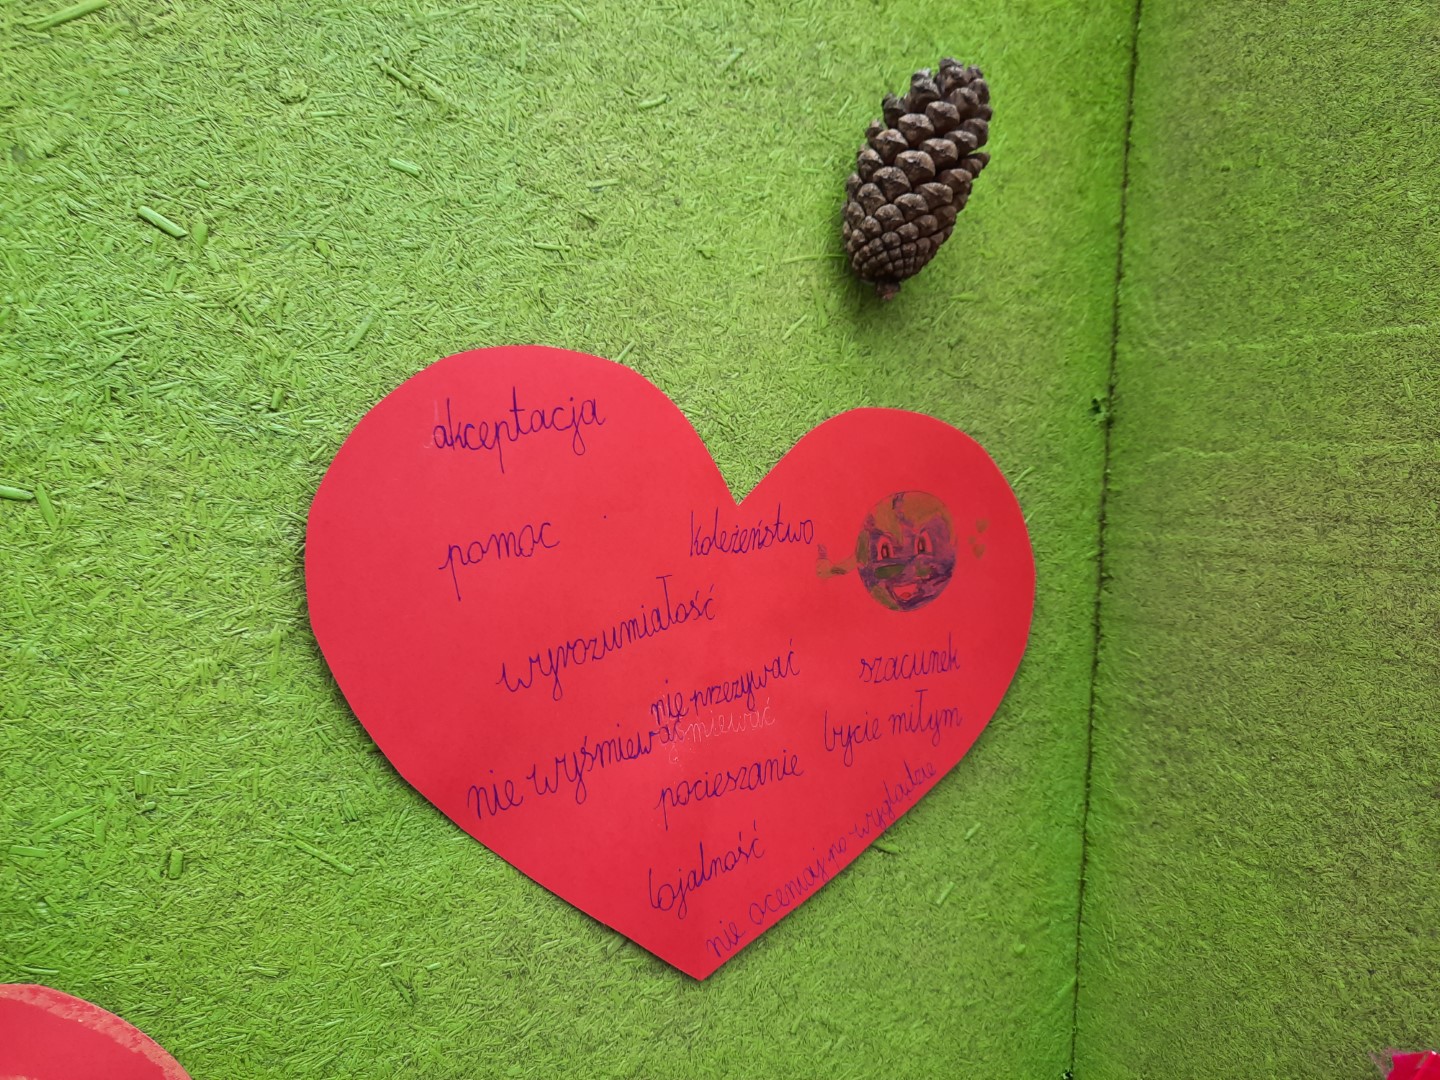 akceptacja
pomoc
koleżeństwo
wyrozumiałość
nie przezywać
szacunek
nie wyśmiewać
bycie miłym
pocieszanie
lojalność
nie oceniaj po wyglądzie